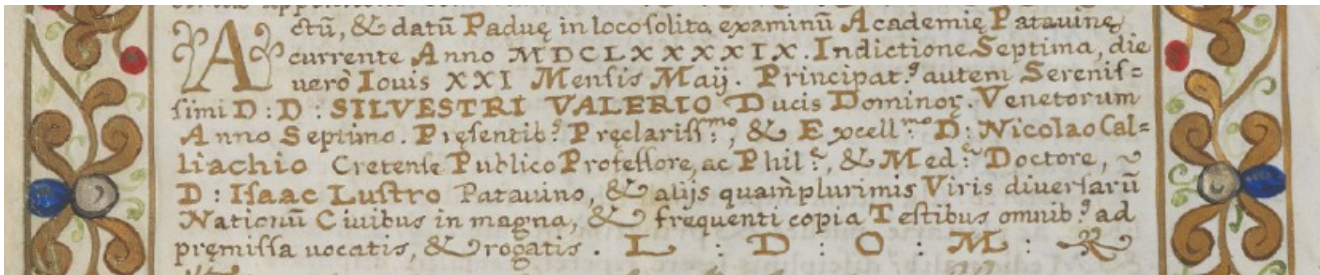 Actũ, & datũ Paduę in loco solito examinũ Academię Patauinę
currente Anno MDCLXXXXIX. Indictione Septima, die
uerò Iouis XXI Mensis Maij. Principat.⁹ autem Serenis=
simi D: D: SILVESTRI VALERIO Ducis Dominoꝝ. Venetorum
Anno Septimo. Pręsentib.⁹ Pręclariss.ᵐᵒ, & Excell.ᵐᵒ D: Nicolao Cal=
liachio Cretense Publico Professore, ac Phil.ę, & Med.ę Doctore,
D: Isaac Lustro Patauino, & alijs quam̃plurimis Viris diuersarũ
Nationũ Ciuibus in magna, & frequenti copia Testibus omnib.⁹ ad
pręmissa uocatis, & rogatis. L : D : O : M :